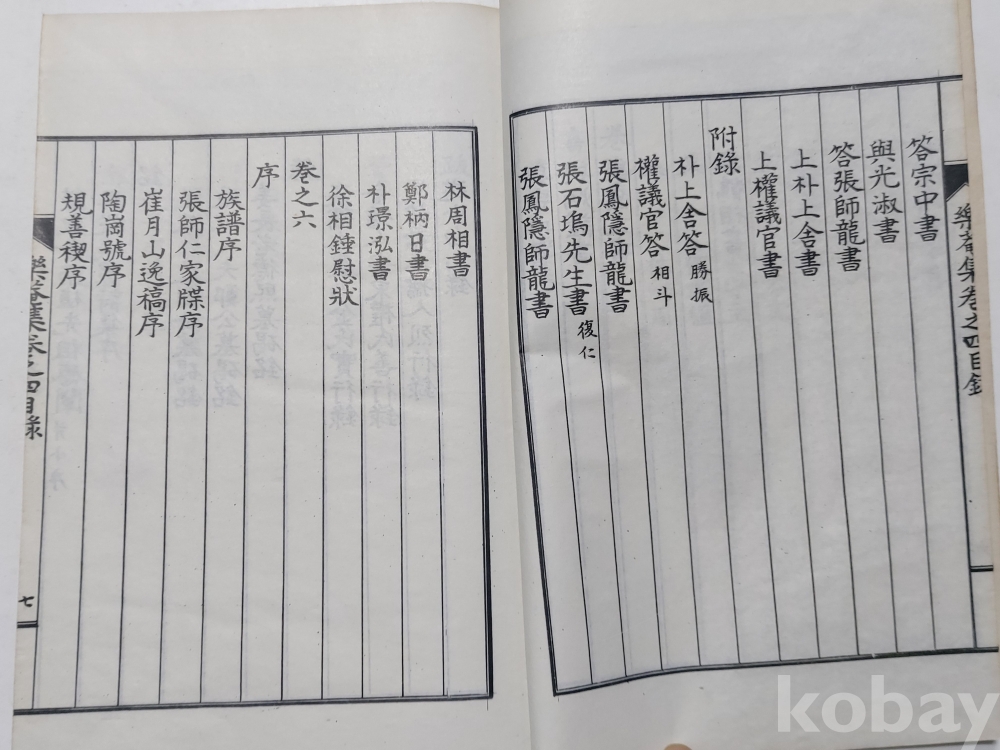 樂菴集卷之四目錄
答宗中書
與光淑書
答張師龍書
上朴上舍書
上權議官書
附錄
朴上舍答 勝振
權議官答 相斗
張鳳隱師龍書
張石塢先生書 復仁
張鳳隱師龍書
林周相書
鄭柄日書
朴璟泓書
徐相鍾慰狀
卷之六
序
族譜序
張師仁家牒序
崔月山逸稿序
陶崗號序
規善稧序
樂菴集卷之四目錄
七
kobay